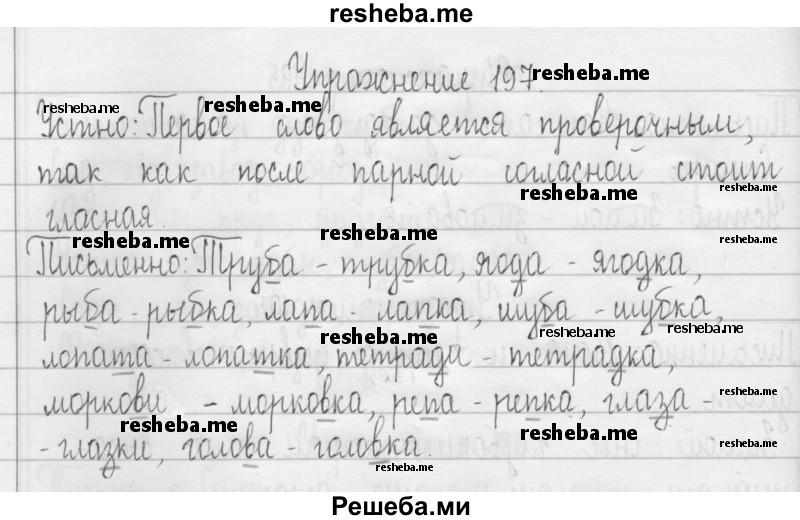 resheba.me
Упражнение 197. resheba.me
resheba.me resheba.me resheba.me
Устно: Первое слово является проверочным,
так как после парной согласной стоит
resheba.me resheba.me
гласная.
resheba.me resheba.me
Письменно: Труба - трубка, ягода - ягодка,
рыба - рыбка, лапа - лапка, шуба - шубка,
resheba.me resheba.me resheba.me
лопата - лопатка, тетради - тетрадка,
моркови - морковка, репа - репка, глаза -
resheba.me resheba.me resheba.me
- глазки, голова - головка.
resheba.me resheba.me
Решеба.ми